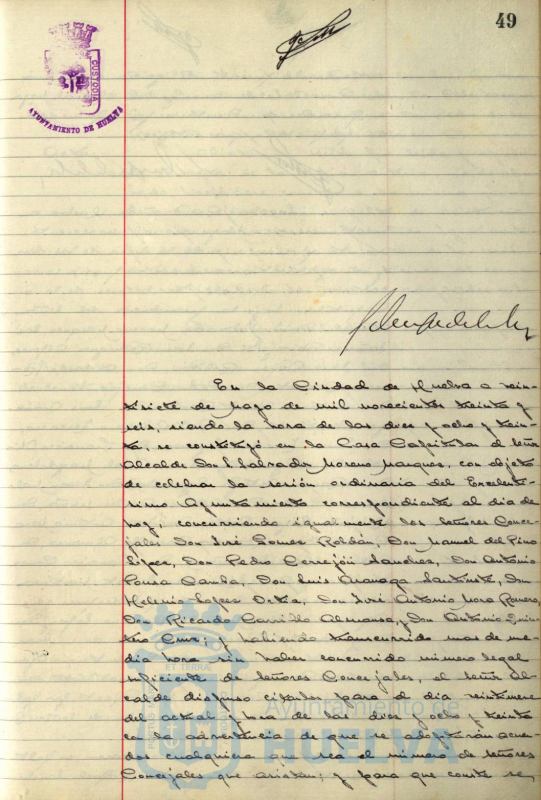 49
CUSTODIA
AYUNTAMIENTO DE HUELVA
En la Ciudad de Huelva a vein-
tisiete de Mayo de mil novecientos treinta y
seis, siendo la hora de las diez y ocho y trein-
ta, se constituyó en la Casa Capitular el señor
Alcalde Don Salvador Moreno Marquez, con objeto
de celebrar la sesión ordinaria del Excelentí-
simo Ayuntamiento correspondiente al día de
hoy; concurriendo igualmente los señores Conce-
jales Don José Gomez Roldán, Don Manuel del Pino
López, Don Pedro Cerrejón Sanchez, Don Antonio
Don Luis Don
Helenio Lopez Don José Antonio Mora Romero,
Don Ricardo Carrillo Almansa, y Don Antonio Quin-
tero Cruz; y habiendo transcurrido mas de me-
dia hora sin haber concurrido número legal
suficiente de señores Concejales, el señor Al-
calde dispuso citarles para el día veintinueve
del actual y hora de las diez y ocho y treinta
con la advertencia de que se adoptarán acuer-
dos cualquiera que sea el número de señores
Concejales que asistan; y para que conste se,
PORTUS
ET TERRAE
Ayuntamiento de
HUELVA